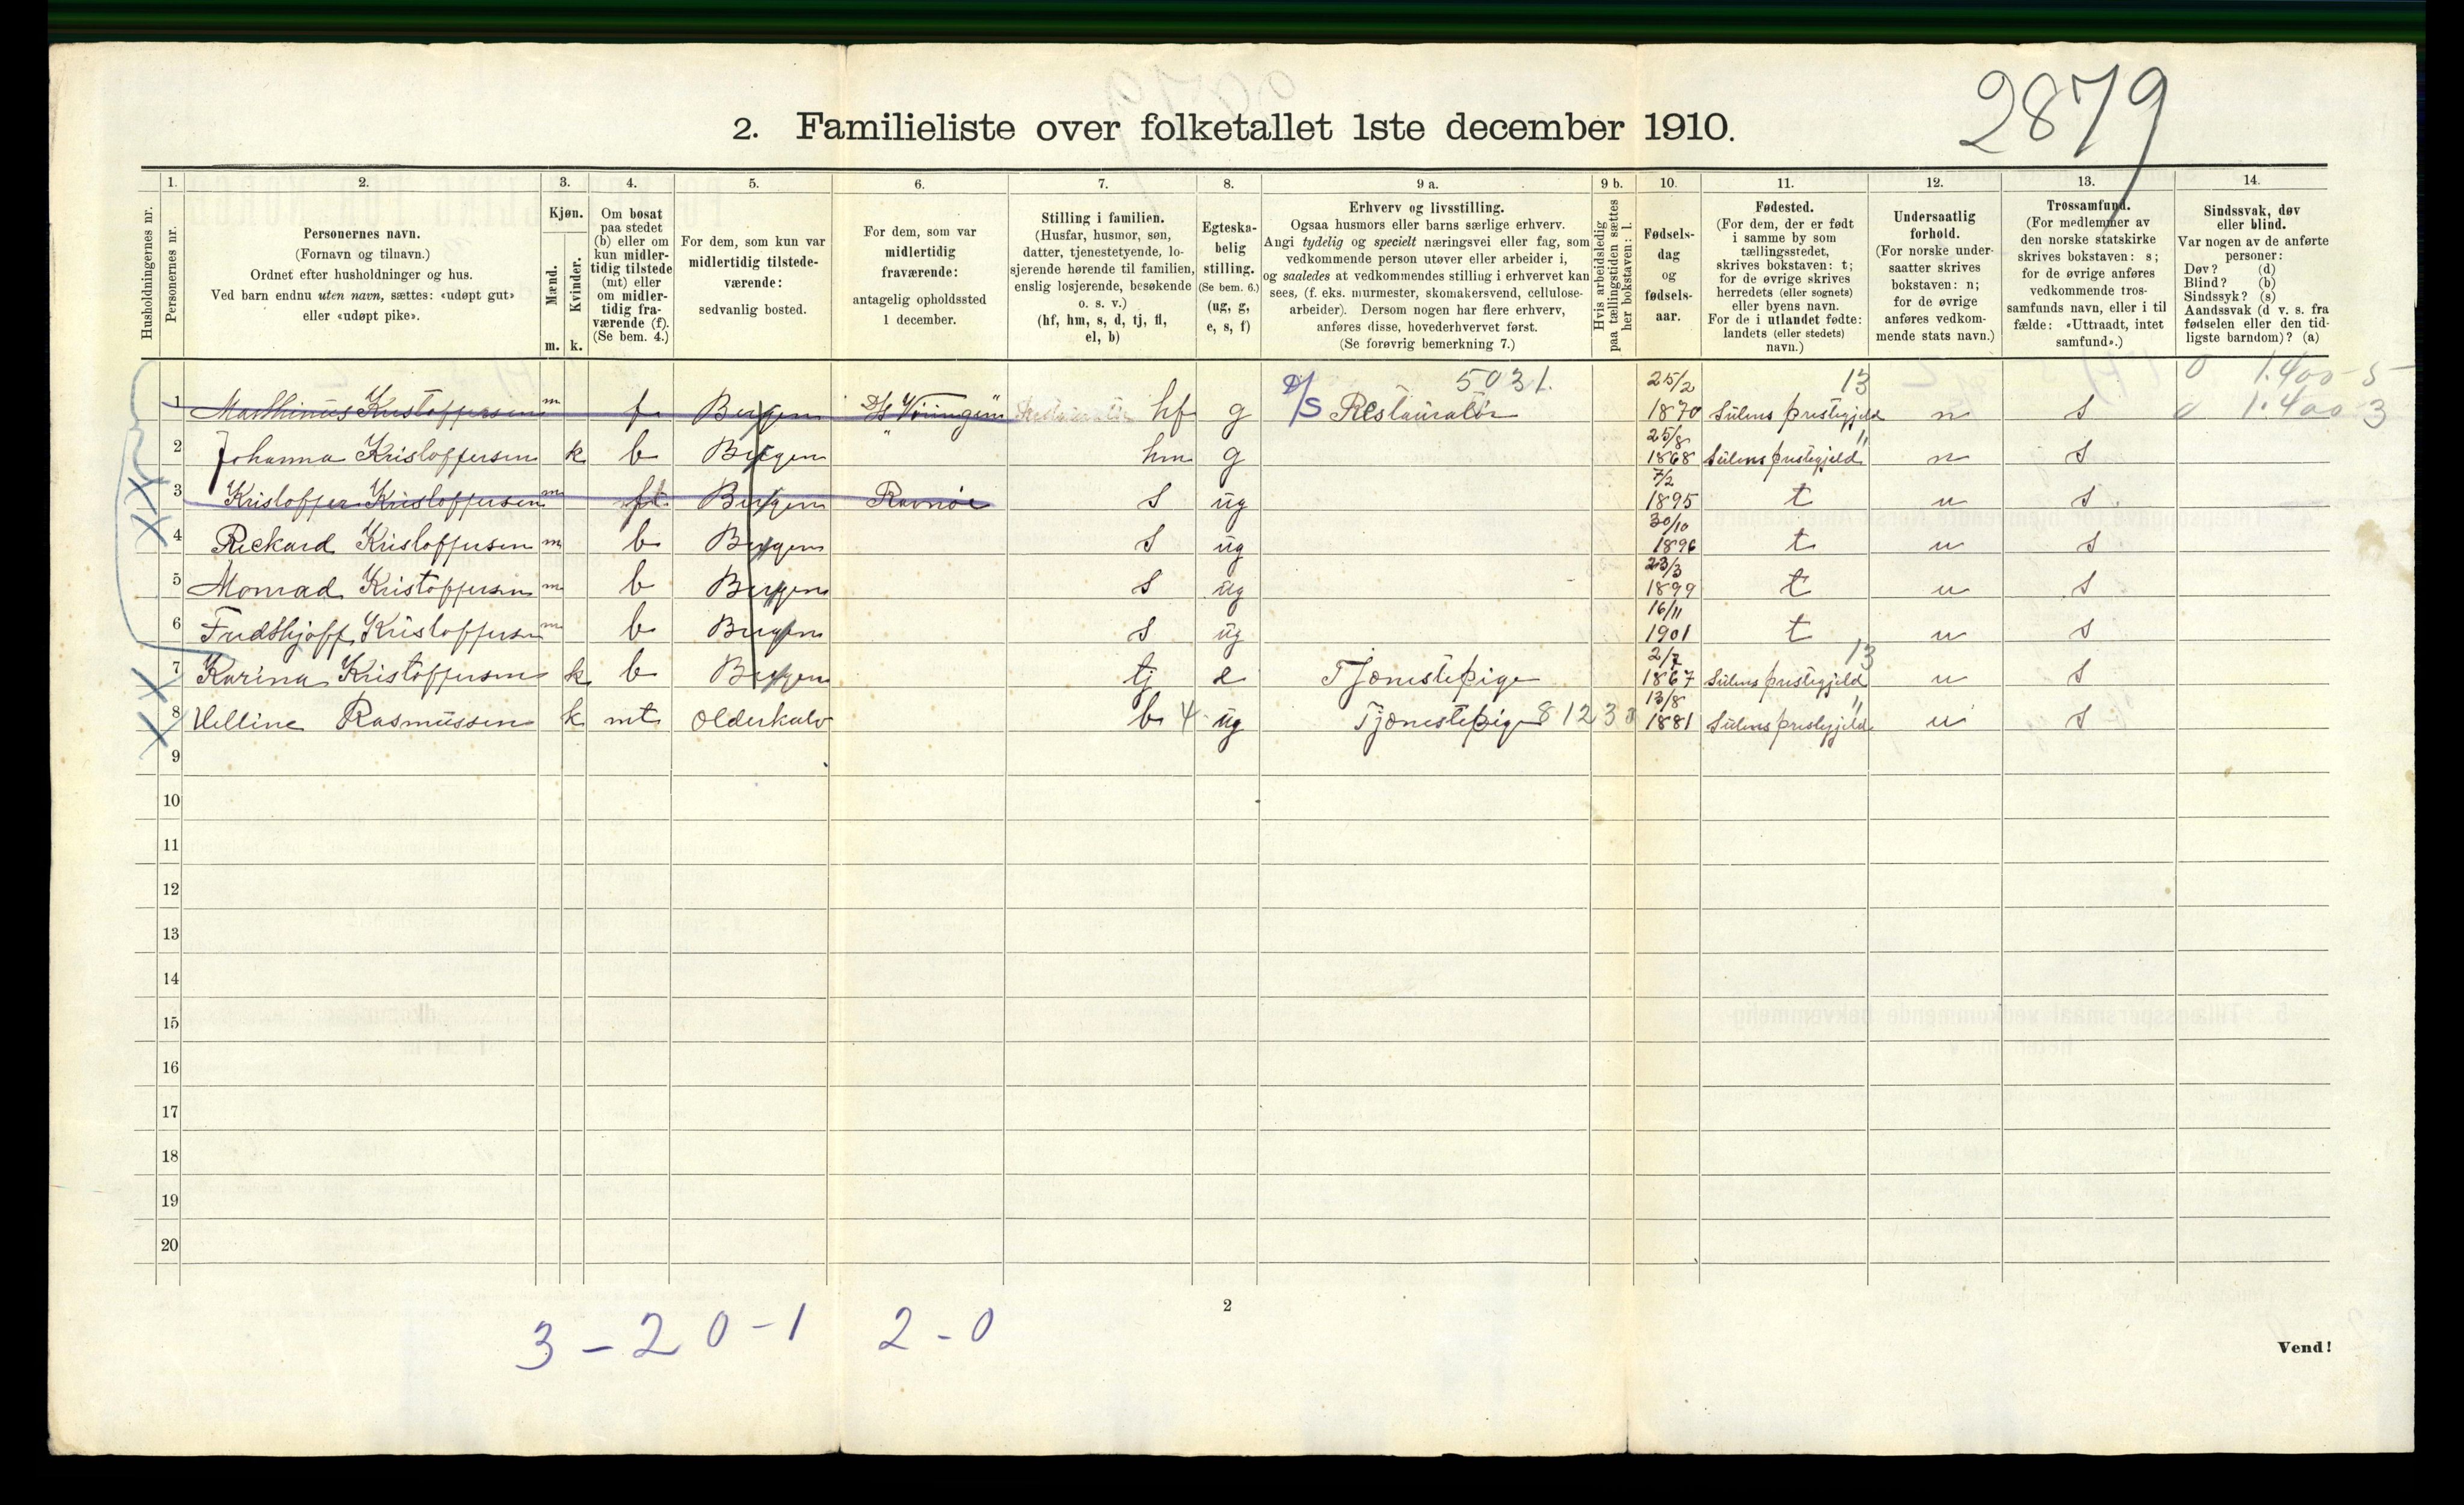 2879
2. Familieliste over folketallet 1ste december 1910.
Husholdningernes nr.
1.
Personernes nr.
2.
Personernes navn.
(Fornavn og tilnavn.)
Ordnet efter husholdninger og hus.
Ved barn endnu uten navn, sættes: «udøpt gut»
eller «udøpt pike».
3.
Kjøn.
Mænd.
Kvinder.
m. k.
4.
Om bosat
paa stedet
(b) eller om
kun midler-
tidig tilstede
(mt) eller
om midler-
tidig fra-
værende (f).
(Se bem. 4.)
5.
For dem, som kun var
midlertidig tilstede-
værende:
sedvanlig bosted.
6.
For dem, som var
midlertidig
fraværende:
antagelig opholdssted
1 december.
7.
Stilling i familien.
(Husfar, husmor, søn,
datter, tjenestetyende, lo-
sjerende hørende til familien,
enslig losjerende, besøkende
o. s. v.)
(hf, hm, s, d, tj, fl,
el, b)
8.
Egteska-
belig
stilling.
(Se bem. 6.)
(ug, g,
e, s, f)
9 a.
Erhverv og livsstilling.
Ogsaa husmors eller barns særlige erhverv.
Angi tydelig og specielt næringsvei eller fag, som
vedkommende person utøver eller arbeider i,
og saaledes at vedkommendes stilling i erhvervet kan
sees, (f. eks. murmester, skomakersvend, cellulose-
arbeider). Dersom nogen har flere erhverv,
anføres disse, hovederhvervet først.
(Se forøvrig bemerkning 7.)
9 b.
Hvis arbeidsledig
paa tællingstiden sættes
her bokstaven: l.
10.
Fødsels-
dag
og
fødsels-
aar.
11.
Fødested.
(For dem, der er født
i samme by som
tællingsstedet,
skrives bokstaven: t;
for de øvrige skrives
herredets (eller sognets)
eller byens navn.
For de i utlandet fødte:
landets (eller stedets)
navn.)
12.
Undersaatlig
forhold.
(For norske under-
saatter skrives
bokstaven: n;
for de øvrige
anføres vedkom-
mende stats navn.)
13.
Trossamfund.
(For medlemmer av
den norske statskirke
skrives bokstaven: s;
for de øvrige anføres
vedkommende tros-
samfunds navn, eller i til
fælde: «Uttraadt, intet
samfund».)
14.
Sindssvak, døv
eller blind.
Var nogen av de anførte
personer:
Døv? (d)
Blind? (b)
Sindssyk? (s)
Aandssvak (d v. s. fra
fødselen eller den tid-
ligste barndom)? (a)
5031. 25/2 13 0 1.400-5
1 Marthinus Kristoffersen m f Bergen D/S Vøringen hf g D/S Restauratør 1870 Sulens prestegjeld n s 0 1.400 3
2 Johanna Kristoffersen k b Bergen " hm g 25/8 1868 Sulens prestegjeld " n s
3 Kristoffer Kristoffersen m Bergen Ravnøe s ug 7/2 1895 t n s.
4 Rickard Kristoffersen m b Bergen s ug 30/10 1896 t n s
5 Monrad Kristoffersen m b Bergen s ug 23/3 1899 t n s
6 Fridthjoff Kristoffersen m b Bergen s ug 16/11 1901 t n s
7 Karina Kristoffersen k b Bergen tj e Tjenestepige 2/7 1867 Sulens prestegjeld 13 n s
8 Velline Rasmussen k mt Olderkalv b 4 ug Tjenestepige 8123 13/8 1881 Sulens prestegjeld " n s
9
10
11
12
13
14
15
16
17
18
19
20
2
3 - 2 0 - 1 2 - 0
Vend!